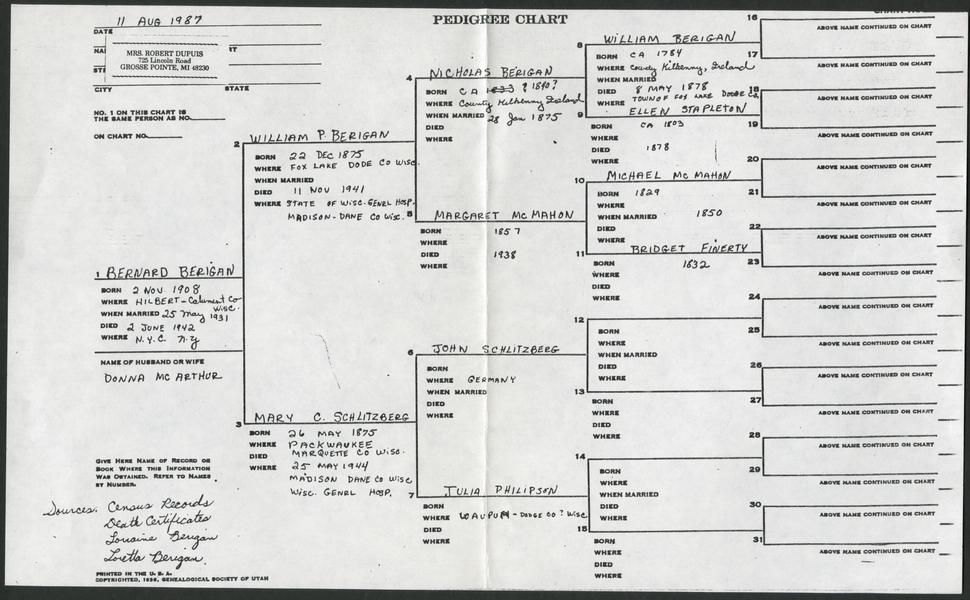 PEDIGREE CHART
11 AUG 1987
DATE
MRS. ROBERT DUPUIS
725 Lincoln Road
GROSSE POINTE, MI 48230
CITY STATE
NO. 1 ON THIS CHART IS
THE SAME PERSON AS NO.
ON CHART NO.
1 BERNARD BERIGAN
BORN 2 NOV 1908
WHERE HILBERT - Calumet Co
WISC.
WHEN MARRIED 25 May 1931
DIED 2 JUNE 1942
WHERE N.Y.C. N.Y
NAME OF HUSBAND OR WIFE
DONNA MC ARTHUR
2 WILLIAM P. BERIGAN
BORN 22 DEC 1875
WHERE FOX LAKE DODE CO WISC.
WHEN MARRIED
DIED 11 NOV 1941
WHERE STATE OF WISC. GENRL HOSP.
MADISON - DANE CO WISC.
3 MARY C. SCHLITZBERG
BORN 26 MAY 1875
WHERE PACKWAUKEE
MARQUETTE CO WISC.
DIED
WHERE 25 MAY 1944
MADISON DANE CO WISC
WISC. GENRL HOSP.
4 NICHOLAS BERIGAN
BORN CA 1833 ? 1840?
WHERE County Kilkenny Ireland
WHEN MARRIED 28 Jan 1875
DIED
WHERE
5 MARGARET MC MAHON
BORN 1857
WHERE
DIED 1938
WHERE
6 JOHN SCHLITZBERG
BORN
WHERE GERMANY
WHEN MARRIED
DIED
WHERE
7 JULIA PHILIPSEN
BORN
WHERE WAUPUN - DODGE CO? WISC
DIED
WHERE
8 WILLIAM BERIGAN
BORN CA 1784
WHERE County Kilkenny, Ireland
WHEN MARRIED
DIED 8 MAY 1878
WHERE TOWN OF FOX LAKE DODGE CO.
9 ELLEN STAPLETON
BORN CA 1803
WHERE
DIED 1878
WHERE
10 MICHAEL MC MAHON
BORN 1829
WHERE
WHEN MARRIED 1850
DIED
WHERE
11 BRIDGET FINERTY
BORN 1832
WHERE
DIED
WHERE
12
BORN
WHERE
WHEN MARRIED
DIED
WHERE
13
BORN
WHERE
DIED
WHERE
14
BORN
WHERE
WHEN MARRIED
DIED
WHERE
15
BORN
WHERE
DIED
WHERE
16
ABOVE NAME CONTINUED ON CHART
17
ABOVE NAME CONTINUED ON CHART
18
ABOVE NAME CONTINUED ON CHART
19
ABOVE NAME CONTINUED ON CHART
20
ABOVE NAME CONTINUED ON CHART
21
ABOVE NAME CONTINUED ON CHART
22
ABOVE NAME CONTINUED ON CHART
23
ABOVE NAME CONTINUED ON CHART
24
ABOVE NAME CONTINUED ON CHART
25
ABOVE NAME CONTINUED ON CHART
26
ABOVE NAME CONTINUED ON CHART
27
ABOVE NAME CONTINUED ON CHART
28
ABOVE NAME CONTINUED ON CHART
29
ABOVE NAME CONTINUED ON CHART
30
ABOVE NAME CONTINUED ON CHART
31
ABOVE NAME CONTINUED ON CHART
GIVE HERE NAME OF RECORD OR
BOOK WHERE THIS INFORMATION
WAS OBTAINED. REFER TO NAMES
BY NUMBER.
Sources: Census Records
Death Certificates
Lorraine Berigan
Loretta Berigan
PRINTED IN THE U. S. A.
COPYRIGHTED, GENEALOGICAL SOCIETY OF UTAH